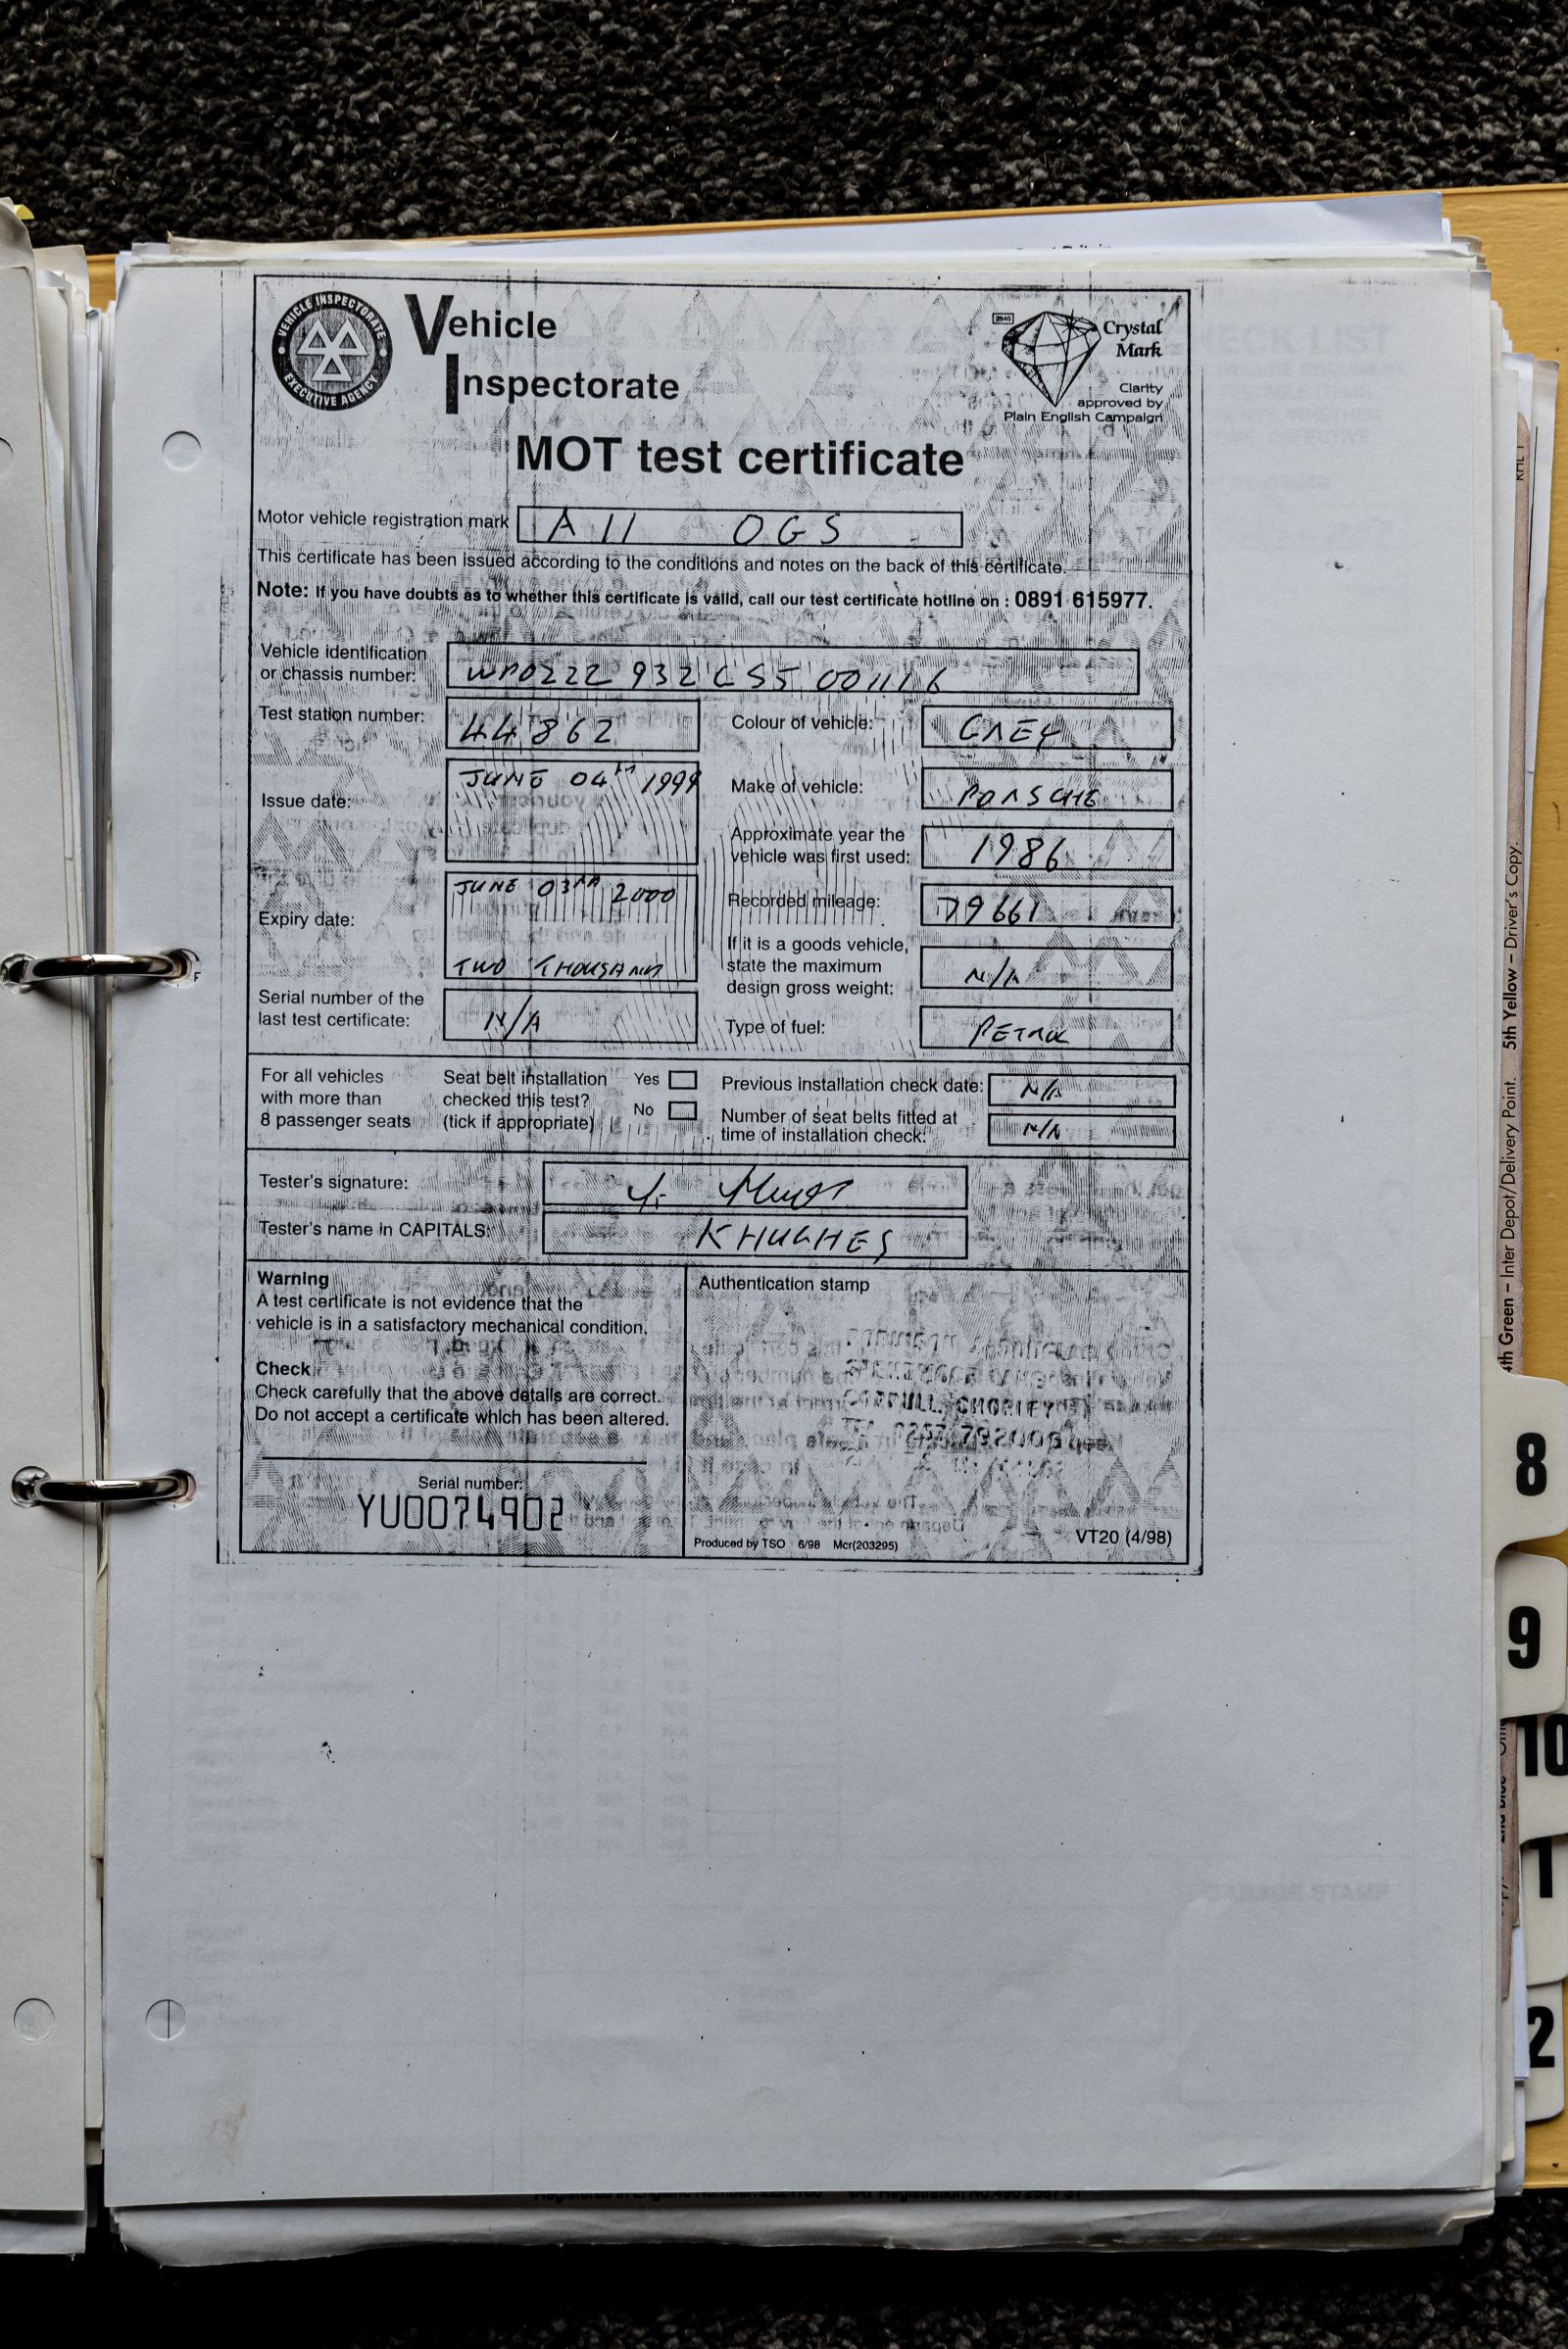 VEHICLE INSPECTORATE
EXECUTIVE AGENCY
Vehicle
Inspectorate
Crystal
Mark
Clarity
approved by
Plain English Campaign
MOT test certificate
Motor vehicle registration mark A11 OGS
This certificate has been issued according to the conditions and notes on the back of this certificate.
Note: If you have doubts as to whether this certificate is valid, call our test certificate hotline on : 0891 615977.
Vehicle identification
or chassis number:
Test station number: 44862
Colour of vehicle: GREY
Issue date: JUNE 04th 1999
Make of vehicle: PORSCHE
Approximate year the
vehicle was first used: 1986
Expiry date: JUNE 03RD 2000
TWO THOUSAND
Recorded mileage: 79661
If it is a goods vehicle,
state the maximum
design gross weight: N/A
Serial number of the
last test certificate: N/A
Type of fuel: PETROL
For all vehicles
with more than
8 passenger seats
Seat belt installation
checked this test?
(tick if appropriate)
Yes
No
Previous installation check date: N/A
Number of seat belts fitted at
time of installation check: N/A
Tester's signature:
Tester's name in CAPITALS: K HUGHES
Warning
A test certificate is not evidence that the
vehicle is in a satisfactory mechanical condition.
Check
Check carefully that the above details are correct.
Do not accept a certificate which has been altered.
Serial number:
YU0074902
Authentication stamp
CHORLEY
Produced by TSO 6/98 Mcr(203295)
VT20 (4/98)
4th Green – Inter Depot/Delivery Point. 5th Yellow – Driver's Copy.
8
9
10
1
2